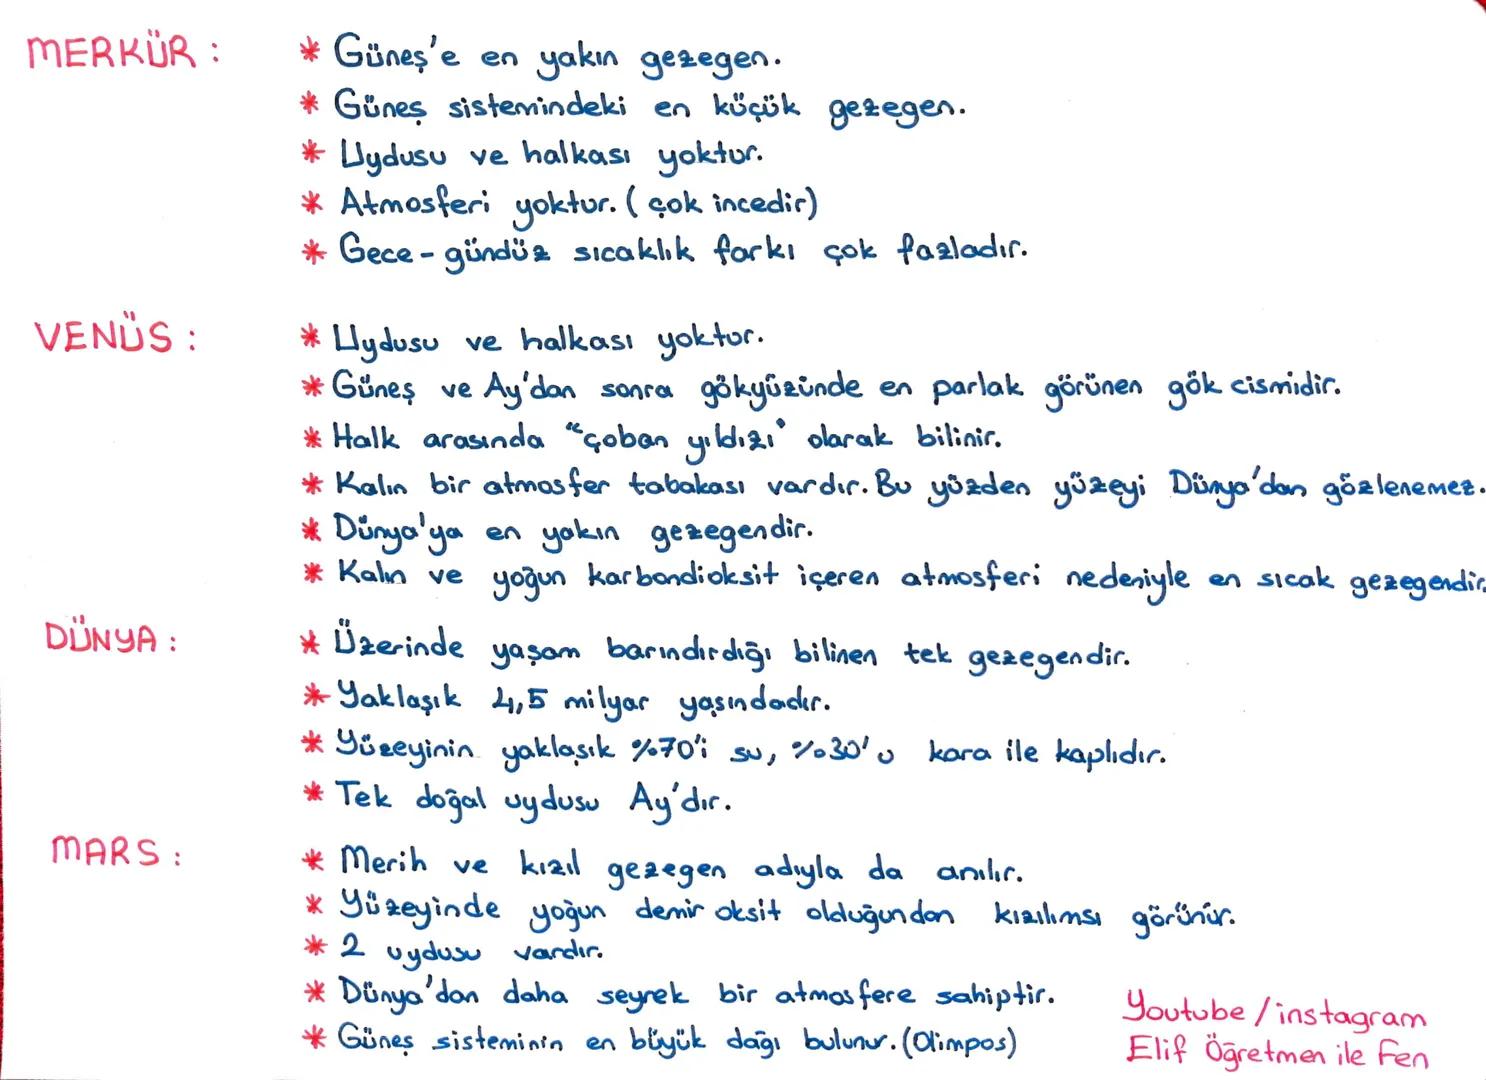 MERKÜR : * Güneş'e en yakın gezegen.
* Güneş sistemindeki en küçük gezegen.
* Uydusu ve halkası yoktur.
* Atmosferi yoktur. ( çok incedir)
* Gece - gündüz sıcaklık farkı çok fazladır.
VENÜS : * Uydusu ve halkası yoktur.
* Güneş ve Ay'dan sonra gökyüzünde en parlak görünen gök cismidir.
* Halk arasında "çoban yıldızı" olarak bilinir.
* Kalın bir atmosfer tabakası vardır. Bu yüzden yüzeyi Dünya'dan gözlenemez.
* Dünya'ya en yakın gezegendir.
* Kalın ve yoğun karbondioksit içeren atmosferi nedeniyle en sıcak gezegendir.
DÜNYA : * Üzerinde yaşam barındırdığı bilinen tek gezegendir.
* Yaklaşık 4,5 milyar yaşındadır.
* Yüzeyinin yaklaşık %70'i su, %30'u kara ile kaplıdır.
* Tek doğal uydusu Ay'dır.
MARS : * Merih ve kızıl gezegen adıyla da anılır.
* Yüzeyinde yoğun demir oksit olduğundan kızılımsı görünür.
* 2 uydusu vardır.
* Dünya'dan daha seyrek bir atmosfere sahiptir.
* Güneş sisteminin en büyük dağı bulunur. (Olimpos)
Youtube / instagram
Elif Öğretmen ile Fen